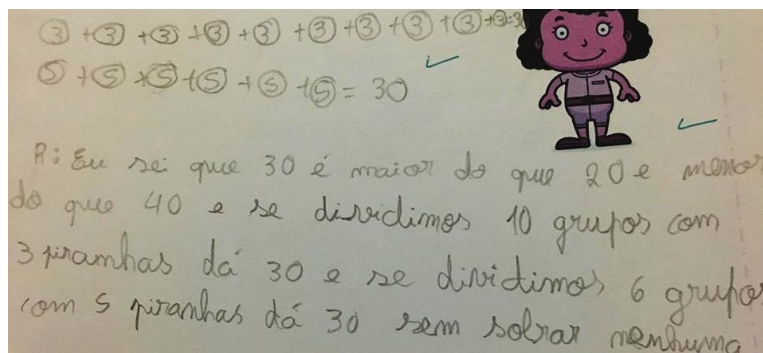 3 + 3 + 3 + 3 + 3 + 3 + 3 + 3 + 3 + 3 = 30
5 + 5 + 5 + 5 + 5 + 5 = 30
R: Eu sei que 30 é maior do que 20 e menor
do que 40 e se dividimos 10 grupos com
3 piranhas dá 30 e se dividimos 6 grupos
com 5 piranhas dá 30 sem sobrar nenhuma